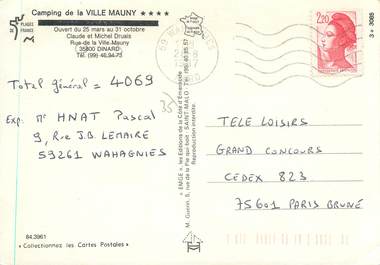 Camping de la VILLE MAUNY ★★★★
PLAGES
DE
FRANCE
Ouvert du 25 mars au 31 octobre
Claude et Michel Druais
Rue de la Ville-Mauny
35800 DINARD
Tél: (99) 46.94.73
Total général = 4069
Exp: Mr HNAT Pascal
9, Rue J.B. LEMAIRE
59261 WAHAGNIES
84.3961
« Collectionnez les Cartes Postales »
« ENIGE », les Editions de la Côte d'Emeraude
M. Guérin, 5, rue de la Pie qui boit - SAINT-MALO
Reproduction interdite.
2,20
TELE LOISIRS
GRAND CONCOURS
CEDEX 823
75601 PARIS BRUNE